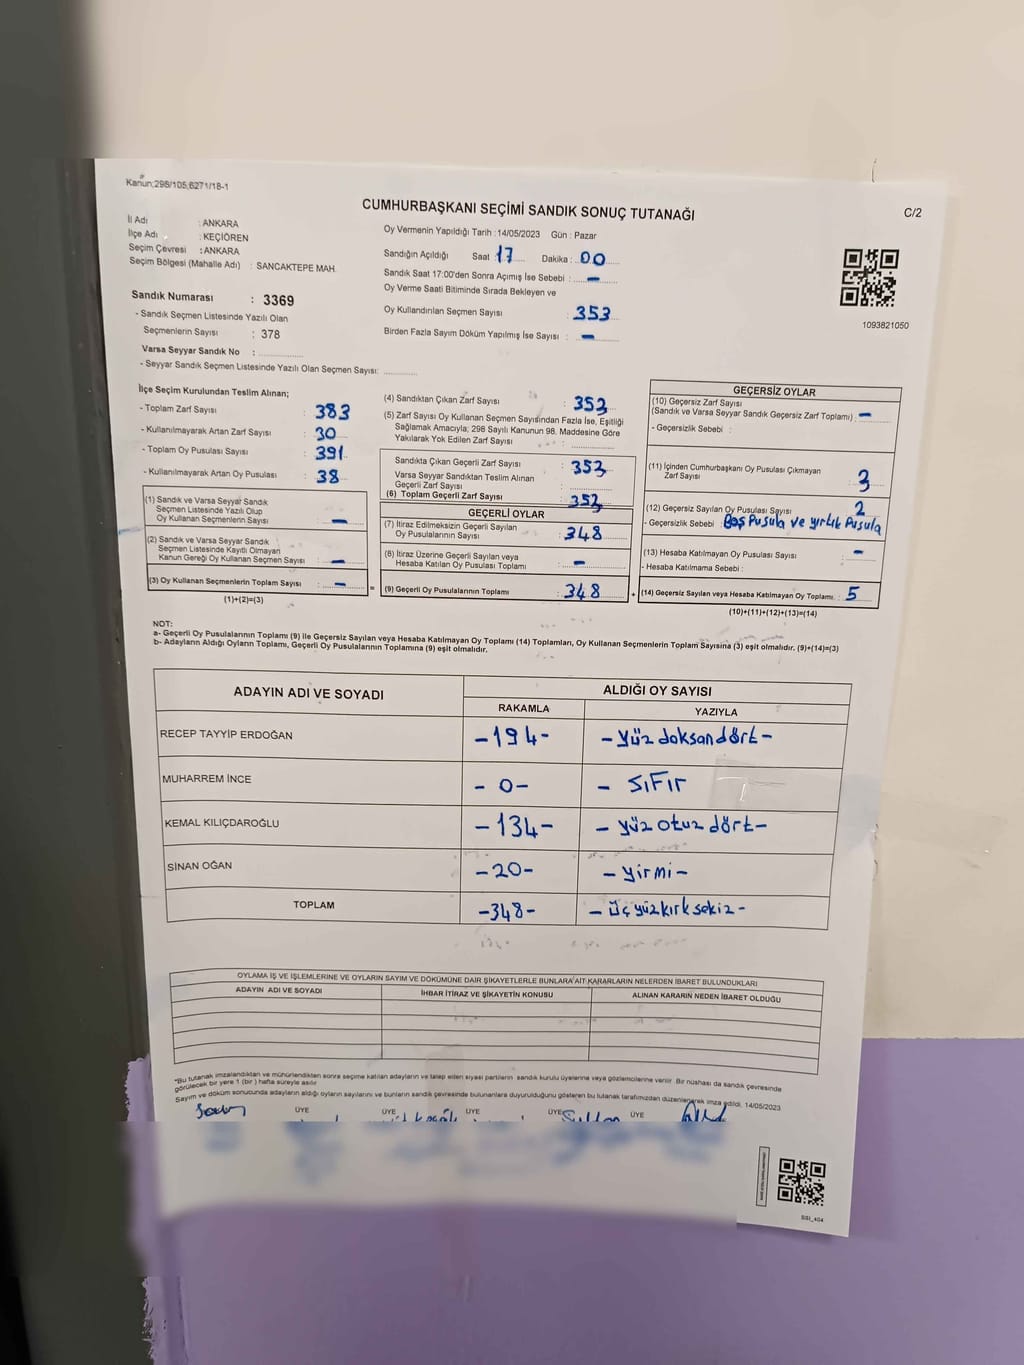 Kanun;298/105;6271/18-1
CUMHURBAŞKANI SEÇİMİ SANDIK SONUÇ TUTANAĞI
C/2
İl Adı : ANKARA
İlçe Adı : KEÇİÖREN
Seçim Çevresi : ANKARA
Seçim Bölgesi (Mahalle Adı) : SANCAKTEPE MAH.
Sandık Numarası : 3369
- Sandık Seçmen Listesinde Yazılı Olan
Seçmenlerin Sayısı : 378
Varsa Seyyar Sandık No :
- Seyyar Sandık Seçmen Listesinde Yazılı Olan Seçmen Sayısı:
Oy Vermenin Yapıldığı Tarih :14/05/2023 Gün : Pazar
Sandığın Açıldığı Saat 17 Dakika : 00
Sandık Saat 17:00'den Sonra Açımış İse Sebebi : -
Oy Verme Saati Bitiminde Sırada Bekleyen ve
Oy Kullandırılan Seçmen Sayısı : 353
Birden Fazla Sayım Döküm Yapılmış İse Sayısı : -
1093821050
İlçe Seçim Kurulundan Teslim Alınan;
- Toplam Zarf Sayısı : 383
- Kullanılmayarak Artan Zarf Sayısı : 30
- Toplam Oy Pusulası Sayısı : 391
- Kullanılmayarak Artan Oy Pusulası : 38
(1) Sandık ve Varsa Seyyar Sandık
Seçmen Listesinde Yazılı Olup
Oy Kullanan Seçmenlerin Sayısı : -
(2) Sandık ve Varsa Seyyar Sandık
Seçmen Listesinde Kayıtlı Olmayan
Kanun Gereği Oy Kullanan Seçmen Sayısı : -
(3) Oy Kullanan Seçmenlerin Toplam Sayısı : - =
(1)+(2)=(3)
(4) Sandıktan Çıkan Zarf Sayısı : 353
(5) Zarf Sayısı Oy Kullanan Seçmen Sayısından Fazla İse, Eşitliği
Sağlamak Amacıyla, 298 Sayılı Kanunun 98. Maddesine Göre
Yakılarak Yok Edilen Zarf Sayısı :
Sandıkta Çıkan Geçerli Zarf Sayısı : 353
Varsa Seyyar Sandıktan Teslim Alınan
Geçerli Zarf Sayısı :
(6) Toplam Geçerli Zarf Sayısı : 353
GEÇERLİ OYLAR
(7) İtiraz Edilmeksizin Geçerli Sayılan
Oy Pusulalarının Sayısı : 348
(8) İtiraz Üzerine Geçerli Sayılan veya
Hesaba Katılan Oy Pusulası Toplamı : -
(9) Geçerli Oy Pusulalarının Toplamı : 348 +
GEÇERSİZ OYLAR
(10) Geçersiz Zarf Sayısı
(Sandık ve Varsa Seyyar Sandık Geçersiz Zarf Toplamı) : -
- Geçersizlik Sebebi :
(11) İçinden Cumhurbaşkanı Oy Pusulası Çıkmayan
Zarf Sayısı : 3
(12) Geçersiz Sayılan Oy Pusulası Sayısı : 2
- Geçersizlik Sebebi : Boş Pusula ve yırtık Pusula
(13) Hesaba Katılmayan Oy Pusulası Sayısı : -
- Hesaba Katılmama Sebebi :
(14) Geçersiz Sayılan veya Hesaba Katılmayan Oy Toplamı : 5
(10)+(11)+(12)+(13)=(14)
NOT:
a- Geçerli Oy Pusulalarının Toplamı (9) ile Geçersiz Sayılan veya Hesaba Katılmayan Oy Toplamı (14) Toplamları, Oy Kullanan Seçmenlerin Toplam Sayısına (3) eşit olmalıdır. (9)+(14)=(3)
b- Adayların Aldığı Oyların Toplamı, Geçerli Oy Pusulalarının Toplamına (9) eşit olmalıdır.
ADAYIN ADI VE SOYADI ALDIĞI OY SAYISI
RAKAMLA YAZIYLA
RECEP TAYYİP ERDOĞAN -194- -yüz doksan dört-
MUHARREM İNCE -0- - SıFır
KEMAL KILIÇDAROĞLU -134- - yüz otuz dört-
SİNAN OĞAN -20- - yirmi-
TOPLAM -348- - üç yüz kırk sekiz-
OYLAMA İŞ VE İŞLEMLERİNE VE OYLARIN SAYIM VE DÖKÜMÜNE DAİR ŞİKAYETLERLE BUNLARA AİT KARARLARIN NELERDEN İBARET BULUNDUKLARI
ADAYIN ADI VE SOYADI İHBAR İTİRAZ VE ŞİKAYETİN KONUSU ALINAN KARARIN NEDEN İBARET OLDUĞU
*Bu tutanak imzalandıktan ve mühürlendikten sonra seçime katılan adayların ve talep eden siyasi partilerin sandık kurulu üyelerine veya gözlemcilerine verilir. Bir nüshası da sandık çevresinde
görülecek bir yere 1 (bir ) hafta süreyle asılır.
Sayım ve döküm sonucunda adayların aldığı oyların sayılarını ve bunların sandık çevresinde bulunanlara duyurulduğunu gösteren bu tutanak tarafımızdan düzenlenerek imza edildi. 14/05/2023
ÜYE ÜYE ÜYE ÜYE ÜYE
SSİ_404